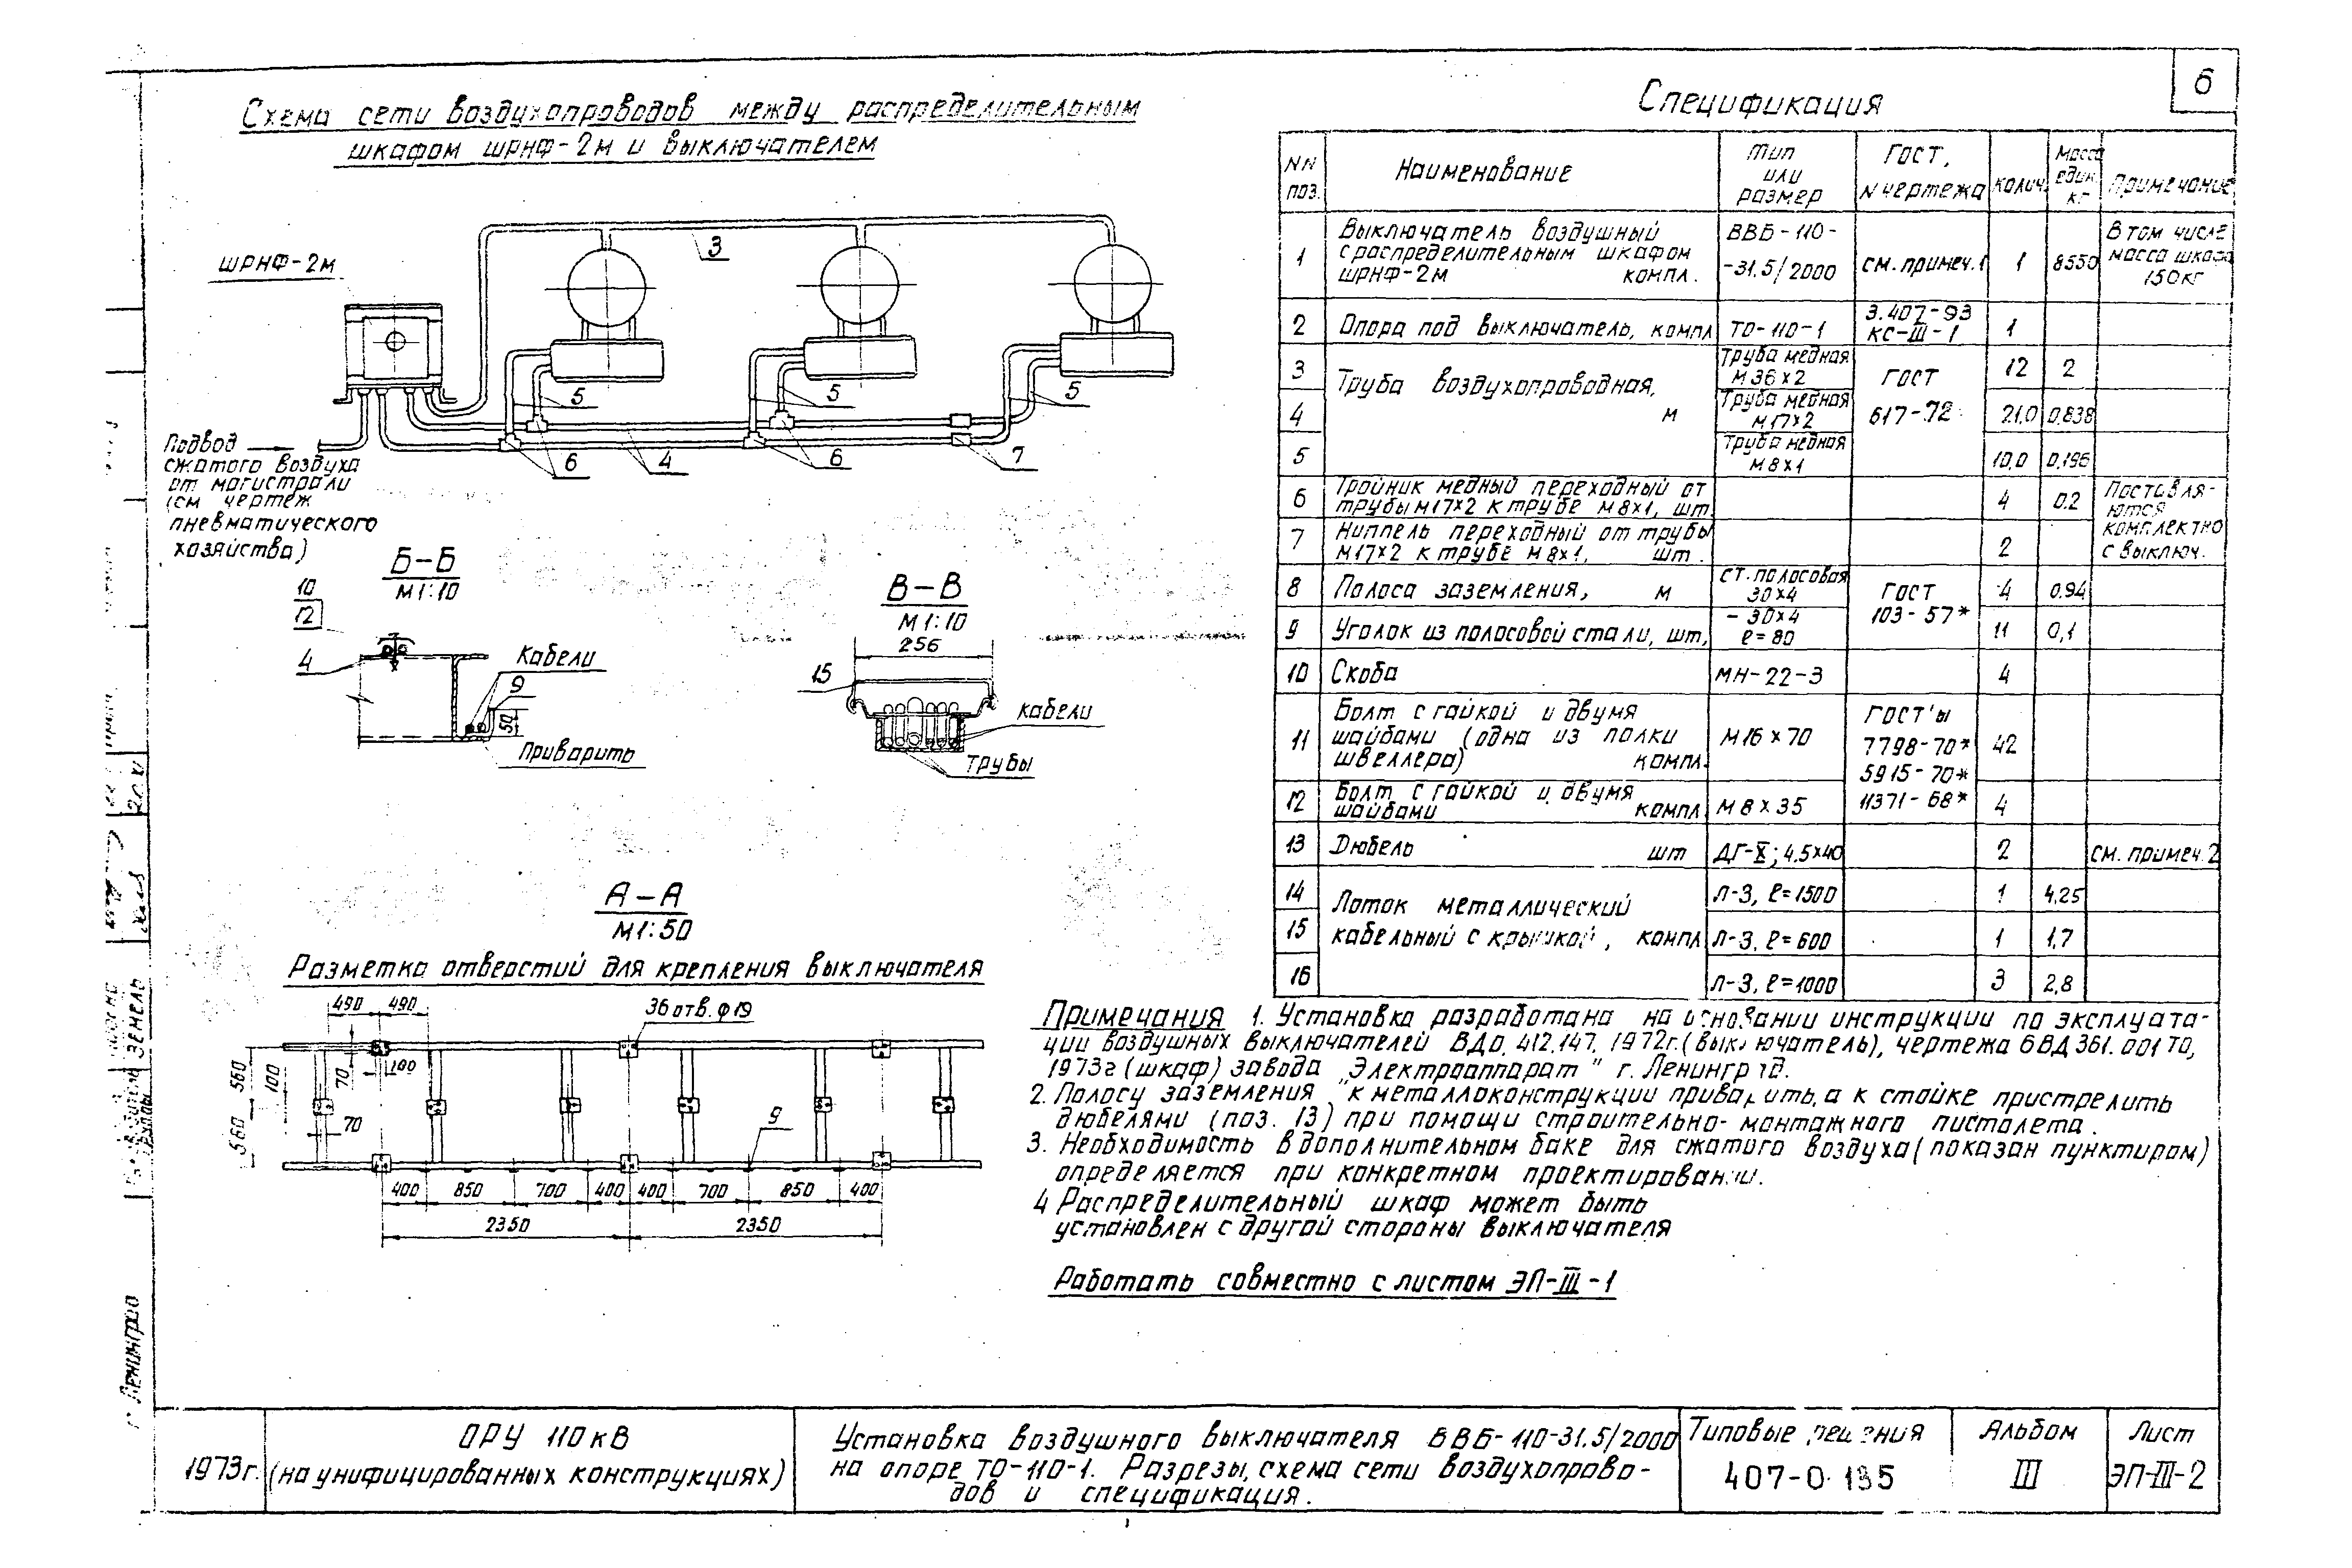 6
Схема сети воздухопроводов между распределительным
шкафом ШРНФ-2м и выключателем
ШРНФ-2м
3
5
5
5
6
4
6
7
Подвод
сжатого воздуха
от магистрали
(см чертеж
пневматического
хозяйства)
Б-Б
М1:10
10
12
4
Кабели
9
50
Приварить
В-В
М1:10
256
15
кабели
Трубы
А-А
М1:50
Разметка отверстий для крепления выключателя
490 490
36 отв. ф19
560 100 70 100
560 70
9
400 850 700 400 400 700 850 400
2350 2350
Спецификация
NN поз. Наименование Тип или размер ГОСТ, N чертежа Колич. Масса един. кг Примечание
1 Выключатель воздушный с распределительным шкафом ШРНФ-2м компл. ВВБ-110--31.5/2000 см. примеч.1 1 8550 В том числе масса шкафа 150кг
2 Опора под выключатель, компл ТО-110-1 3.407-93 КС-III-1 1
3 Труба воздухопроводная, м Труба медная М36х2 ГОСТ 617-72 12 2
4 Труба медная М17х2 21.0 0.838
5 Труба медная М8х1 10.0 0.196
6 Тройник медный переходный от трубы М17х2 к трубе М8х1, шт. 4 0.2 Поставляются комплектно с выключ.
7 Ниппель переходный от трубы М17х2 к трубе М8х1, шт. 2
8 Полоса заземления, м ст. полосовая 30х4 ГОСТ 103-57* 4 0.94
9 Уголок из полосовой стали, шт, - 30х4 ℓ=80 11 0,1
10 Скоба МН-22-3 4
11 Болт с гайкой и двумя шайбами (одна из полки швеллера) компл. М16х70 ГОСТ'ы 7798-70* 5915-70* 11371-68* 42
12 Болт с гайкой и двумя шайбами компл М8х35 4
13 Дюбель шт ДГ-X; 4.5х40 2 см. примеч.2
14 Лоток металлический кабельный с крышкой, компл Л-3, ℓ=1500 1 4,25
15 Л-3, ℓ=600 1 1,7
16 Л-3, ℓ=1000 3 2,8
Примечания 1. Установка разработана на основании инструкции по эксплуата-
ции воздушных выключателей ВДО.412.147. 1972г.(выключатель), чертежа 6ВД 361.001 ТО,
1973г (шкаф) завода "Электроаппарат" г. Ленинград.
2. Полосу заземления к металлоконструкции приварить, а к стойке пристрелить
дюбелями (поз. 13) при помощи строительно-монтажного пистолета.
3. Необходимость в дополнительном баке для сжатого воздуха (показан пунктиром)
определяется при конкретном проектировании.
4 Распределительный шкаф может быть
установлен с другой стороны выключателя
Работать совместно с листом ЭП-III-1
г Ленинград
1973г.
ОРУ 110кВ
(на унифицированных конструкциях)
Установка воздушного выключателя ВВБ-110-31.5/2000
на опоре ТО-110-1. Разрезы, схема сети воздухопрово-
дов и спецификация.
Типовые решения
407-0-135
Альбом
III
Лист
ЭП-III-2